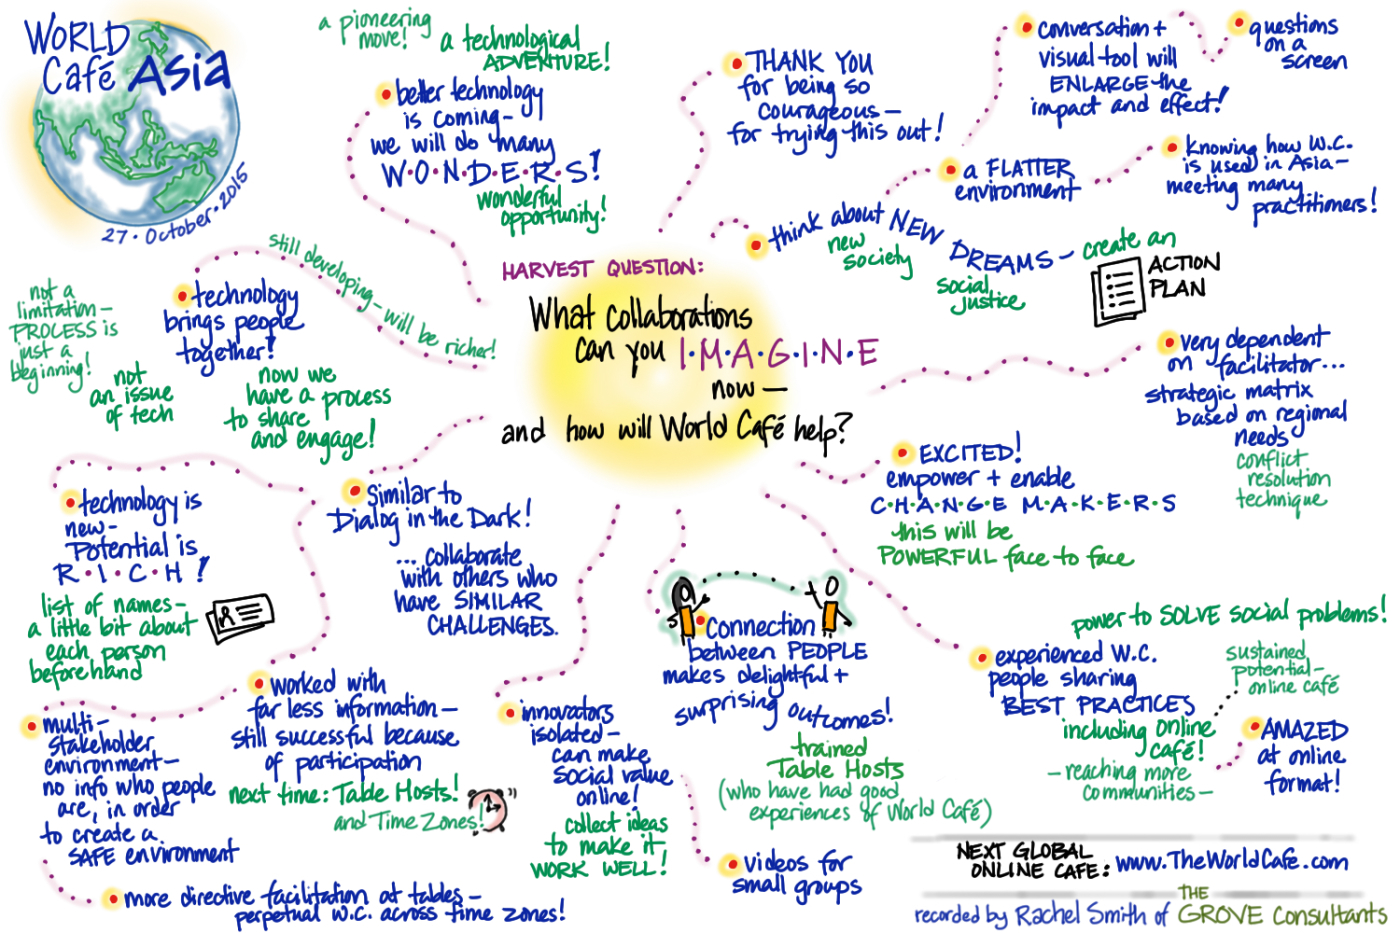 WORLD
Café Asia
27 · October · 2015
a pioneering
move!
a technological
ADVENTURE!
better technology
is coming –
we will do many
W·O·N·D·E·R·S!
wonderful
opportunity!
THANK YOU
for being so
courageous –
for trying this out!
conversation +
visual tool will
ENLARGE the
impact and effect!
questions
on a
screen
a FLATTER
environment
Knowing how W.C.
is used in Asia –
meeting many
practitioners!
think about NEW
DREAMS –
new
society
social
justice
create an
ACTION
PLAN
HARVEST QUESTION:
What collaborations
can you I·M·A·G·I·N·E
now —
and how will World Café help?
still developing – will be richer!
technology
brings people
together!
not a
limitation –
PROCESS is
just a
beginning!
not
an issue
of tech
now we
have a process
to share
and engage!
very dependent
on facilitator...
strategic matrix
based on regional
needs
conflict
resolution
technique
EXCITED!
empower + enable
C·H·A·N·G·E M·A·K·E·R·S
this will be
POWERFUL face to face
technology is
new –
Potential is
R·I·C·H!
list of names –
a little bit about
each person
beforehand
Similar to
Dialog in the Dark!
... collaborate
with others who
have SIMILAR
CHALLENGES.
Connection
between PEOPLE
makes delightful +
surprising outcomes!
trained
Table Hosts
(who have had good
experiences of World Café)
power to SOLVE social problems!
experienced W.C.
people sharing
BEST PRACTICES
including online
café!
– reaching more
communities –
sustained
potential –
online café
AMAZED
at online
format!
multi-
stakeholder
environment –
no info who people
are, in order
to create a
SAFE environment
worked with
far less information –
still successful because
of participation
next time: Table Hosts!
and Time Zones!
innovators
isolated –
can make
social value
online!
collect ideas
to make it
WORK WELL!
videos for
small groups
more directive facilitation at tables –
perpetual W.C. across time zones!
NEXT GLOBAL
ONLINE CAFE: www.TheWorldCafe.com
recorded by Rachel Smith of THE GROVE Consultants